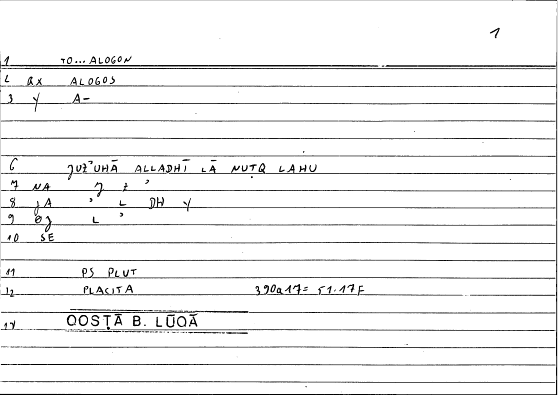 1
1 TO... ALOGON
2 QX ALOGOS
3 Y A-
6 JUZ'UHĀ ALLADHĪ LĀ NUTQ LAHU
7 NA J Z '
8 JA ' L DH Y
9 L '
10 SE
11 PS PLUT
12 PLACITA 390a17= 51.17F
14 QOSṬĀ B. LŪQĀ